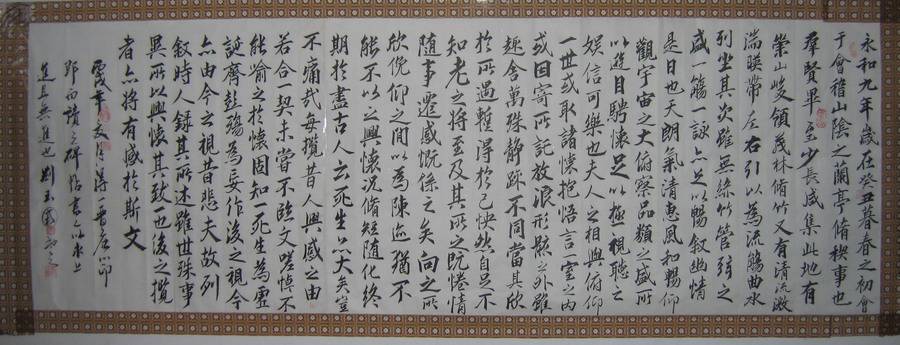 永和九年歲在癸丑暮春之初會
于會稽山陰之蘭亭脩稧事也
羣賢畢至少長咸集此地有
崇山峻領茂林脩竹又有清流激
湍暎帶左右引以為流觴曲水
列坐其次雖無絲竹管弦之
盛一觴一詠亦足以暢敘幽情
是日也天朗氣清惠風和暢仰
觀宇宙之大俯察品類之盛所
以遊目騁懷足以極視聽之
娛信可樂也夫人之相與俯仰
一世或取諸懷抱悟言一室之內
或因寄所託放浪形骸之外雖
趣舍萬殊靜躁不同當其欣
於所遇蹔得於己快然自足不
知老之將至及其所之既惓情
隨事遷感慨係之矣向之所
欣俛仰之間以為陳迹猶不
能不以之興懷況脩短隨化終
期於盡古人云死生亦大矣豈
不痛哉每攬昔人興感之由
若合一契未嘗不臨文嗟悼不
能喻之於懷固知一死生為虛
誕齊彭殤為妄作後之視今
亦由今之視昔悲夫故列
敘時人錄其所述雖世殊事
異所以興懷其致一也後之攬
者亦將有感於斯文